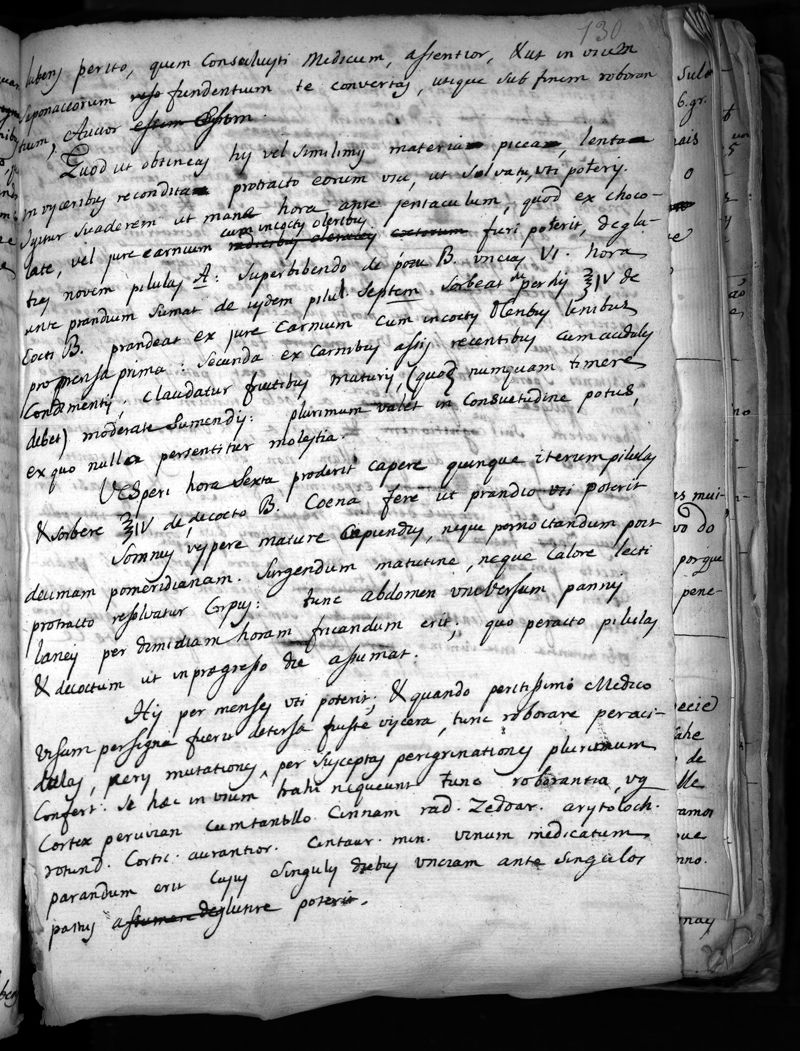 130
lubens perito, quem Consuluisti Medicum, assentior, & ut in usum
saponaceorum fundentium te convertas, usque sub finem roboran
tium, Auctor
Quod ut obtineas his vel similimis materia picea, lenta
in visceribus recondita protracto eorum usu, ut solvatur, uti poteris.
Igitur suaderem ut mane hora ante jentaculum, quod ex choco-
cum incoctis oleribus
late, vel jure carnium fieri poterit, deglu-
tias novem pilulas A: Superbibendo de B. uncias VI. hora
ante prandium sumat de iisdem pilul. Septem sorbeat perhis ℥IV de
cocti B. prandeat ex jure Carnium Cum incoctis Oleribus lenibus
pro mensa prima: Secunda ex Carnibus assis recentibus cum acidulis
Condimentis; claudatur fructibus maturis, (quos numquam timere
debet) moderate sumendis: plurimum valet in Consuetudine potus,
ex quo nulla persentitur molestia.
Vesperi hora sexta proderit capere quinque iterum pilulas
& sorbere ℥IV de decocto B. Coena fere ut prandio uti poterit
Somnus vespere mature Capiendus, neque pernoctandum post
decimam pomeridianam. Surgendum matutine, neque Calore lecti
protracto resolvatur Crpus: tunc abdomen universum pannis
laneis per dimidiam horam fricandum erit; quo peracto pilulas
& decoctum ut in progresso die assumat.
His per menses uti poterit; & quando peritissimo Medico
visum per signa fuere detersa fuisse viscera, tunc roborare per aci-
dulas, aeris mutationes, per susceptas peregrinationes plurimum
Confert. Se haec in usum trahi nequeunt tunc roborantia, vg
Cortex peruvian cum tantillo Cinnam rad. Zedoar. arystoloch.
rotund. Cortic. aurantior. Centaur. min. vinum medicatum
parandum erit Cujus Singulis diebus unciam ante Singulos
pastus deglutire poterit.